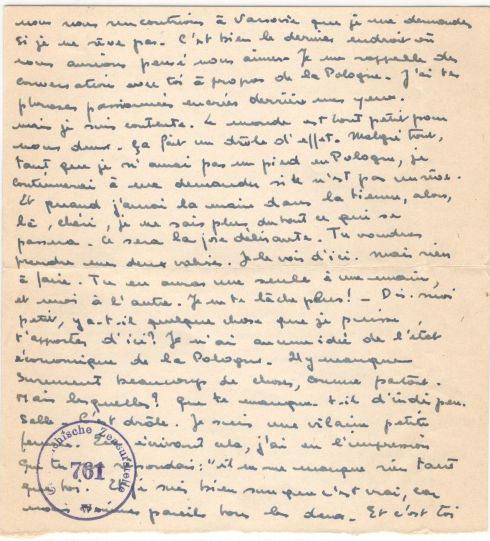 nous nous rencontrions à Varsovie que je me demandes
si je ne rêve pas. C'est bien le dernier endroit où
nous aurions pensé nous aimer. Je me rappelle des
conversations avec toi à propos de la Pologne. J'ai tes
phrases passionnées ancrés derrière mes yeux.
mais je suis contente. Le monde est tout petit pour
nous deux. Ça fait un drôle d'effet. Malgré tout,
tant que je n'aurai pas un pied en Pologne, je
continuerai à me demander si ce n'est pas un rêve.
Et quand j'aurai la main dans la tienne, alors,
là, chéri, je ne sais plus du tout ce qui se
passera. Ce sera la joie délirante. Tu voudras
prendre mes deux valises. Je le vois d'ici. mais rien
à faire. Tu en auras une seule à une main,
et moi à l'autre. Je ne te lâche plus! – Dis-moi
petit, y a-t-il quelque chose que je puisse
t'apporter d'ici? Je n'ai aucune idée de l'état
économique de la Pologne. Il y manque
surement beaucoup de choses, comme partout.
Mais lesquelles? que te manque-t-il d'indispen-
sable. C'est drôle. Je suis une vilaine petite
écrivant cela, j'ai eu l'impression
que tu répondais: "il ne me manque rien tant
que toi. Et je suis bien sure que c'est vrai, car
nous sommes pareils tous les deux. Et c'est toi
Zensurstelle
761